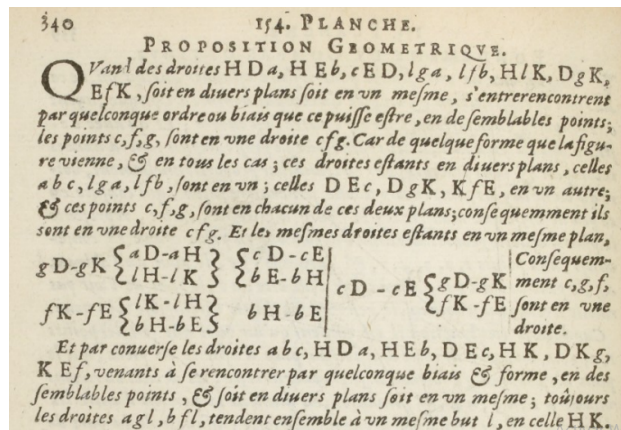 340 154. PLANCHE.
PROPOSITION GEOMETRIQVE.
QVand des droites HDa, HEb, cED, lga, lfb, HlK, DgK,
EfK, ſoit en diuers plans ſoit en vn meſme, s'entrerencontrent
par quelconque ordre ou biais que ce puiſſe eſtre, en de ſemblables points;
les points c, f, g, ſont en vne droite cfg. Car de quelque forme que la figu-
re vienne, & en tous les cas; ces droites eſtants en diuers plans, celles
abc, lga, lfb, ſont en vn; celles DEc, DgK, KfE, en vn autre;
& ces points c, f, g, ſont en chacun de ces deux plans; conſequemment ils
sont en vne droite cfg. Et les meſmes droites eſtants en vn meſme plan,
gD-gK {aD-aH} {cD-cE Conſequem-
{lH-lK} {bE-bH cD-cE {gD-gK ment c, g, f,
fK-fE {lK-lH} bH-bE {fK-fE ſont en vne
{bH-bE} droite.
Et par conuerſe les droites abc, HDa, HEb, DEc, HK, DKg,
KEf, venants à ſe rencontrer par quelconque biais & forme, en des
ſemblables points, & ſoit en diuers plans ſoit en vn meſme; toûjours
les droites agl, bfl, tendent enſemble à vn meſme but l, en celle HK.